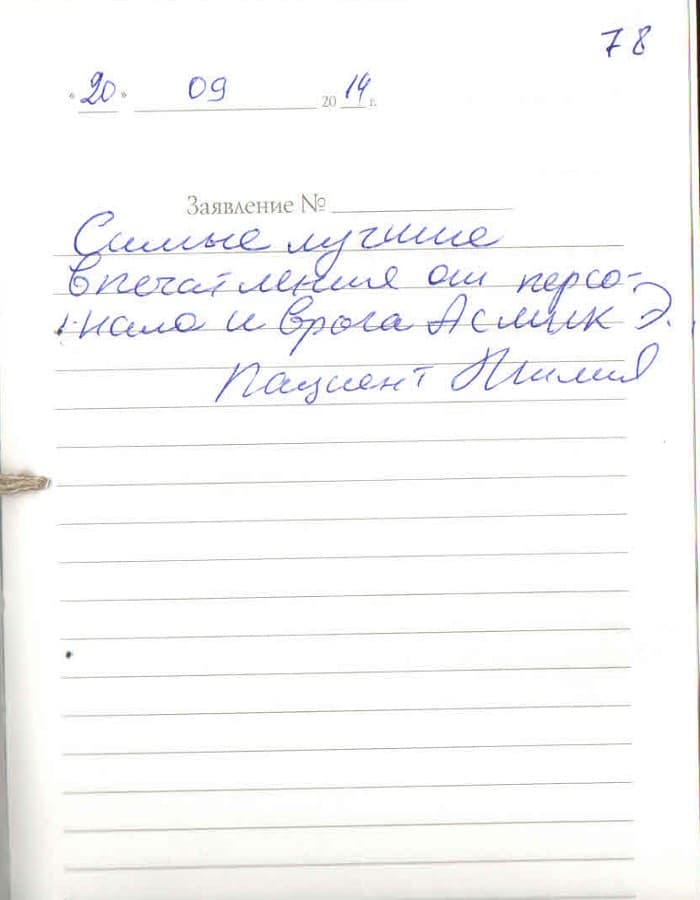 78
"20" 09 2014 г.
Заявление №
Самые лучшие
впечатления от персо-
нала и врача Асмик Э.
Пациент